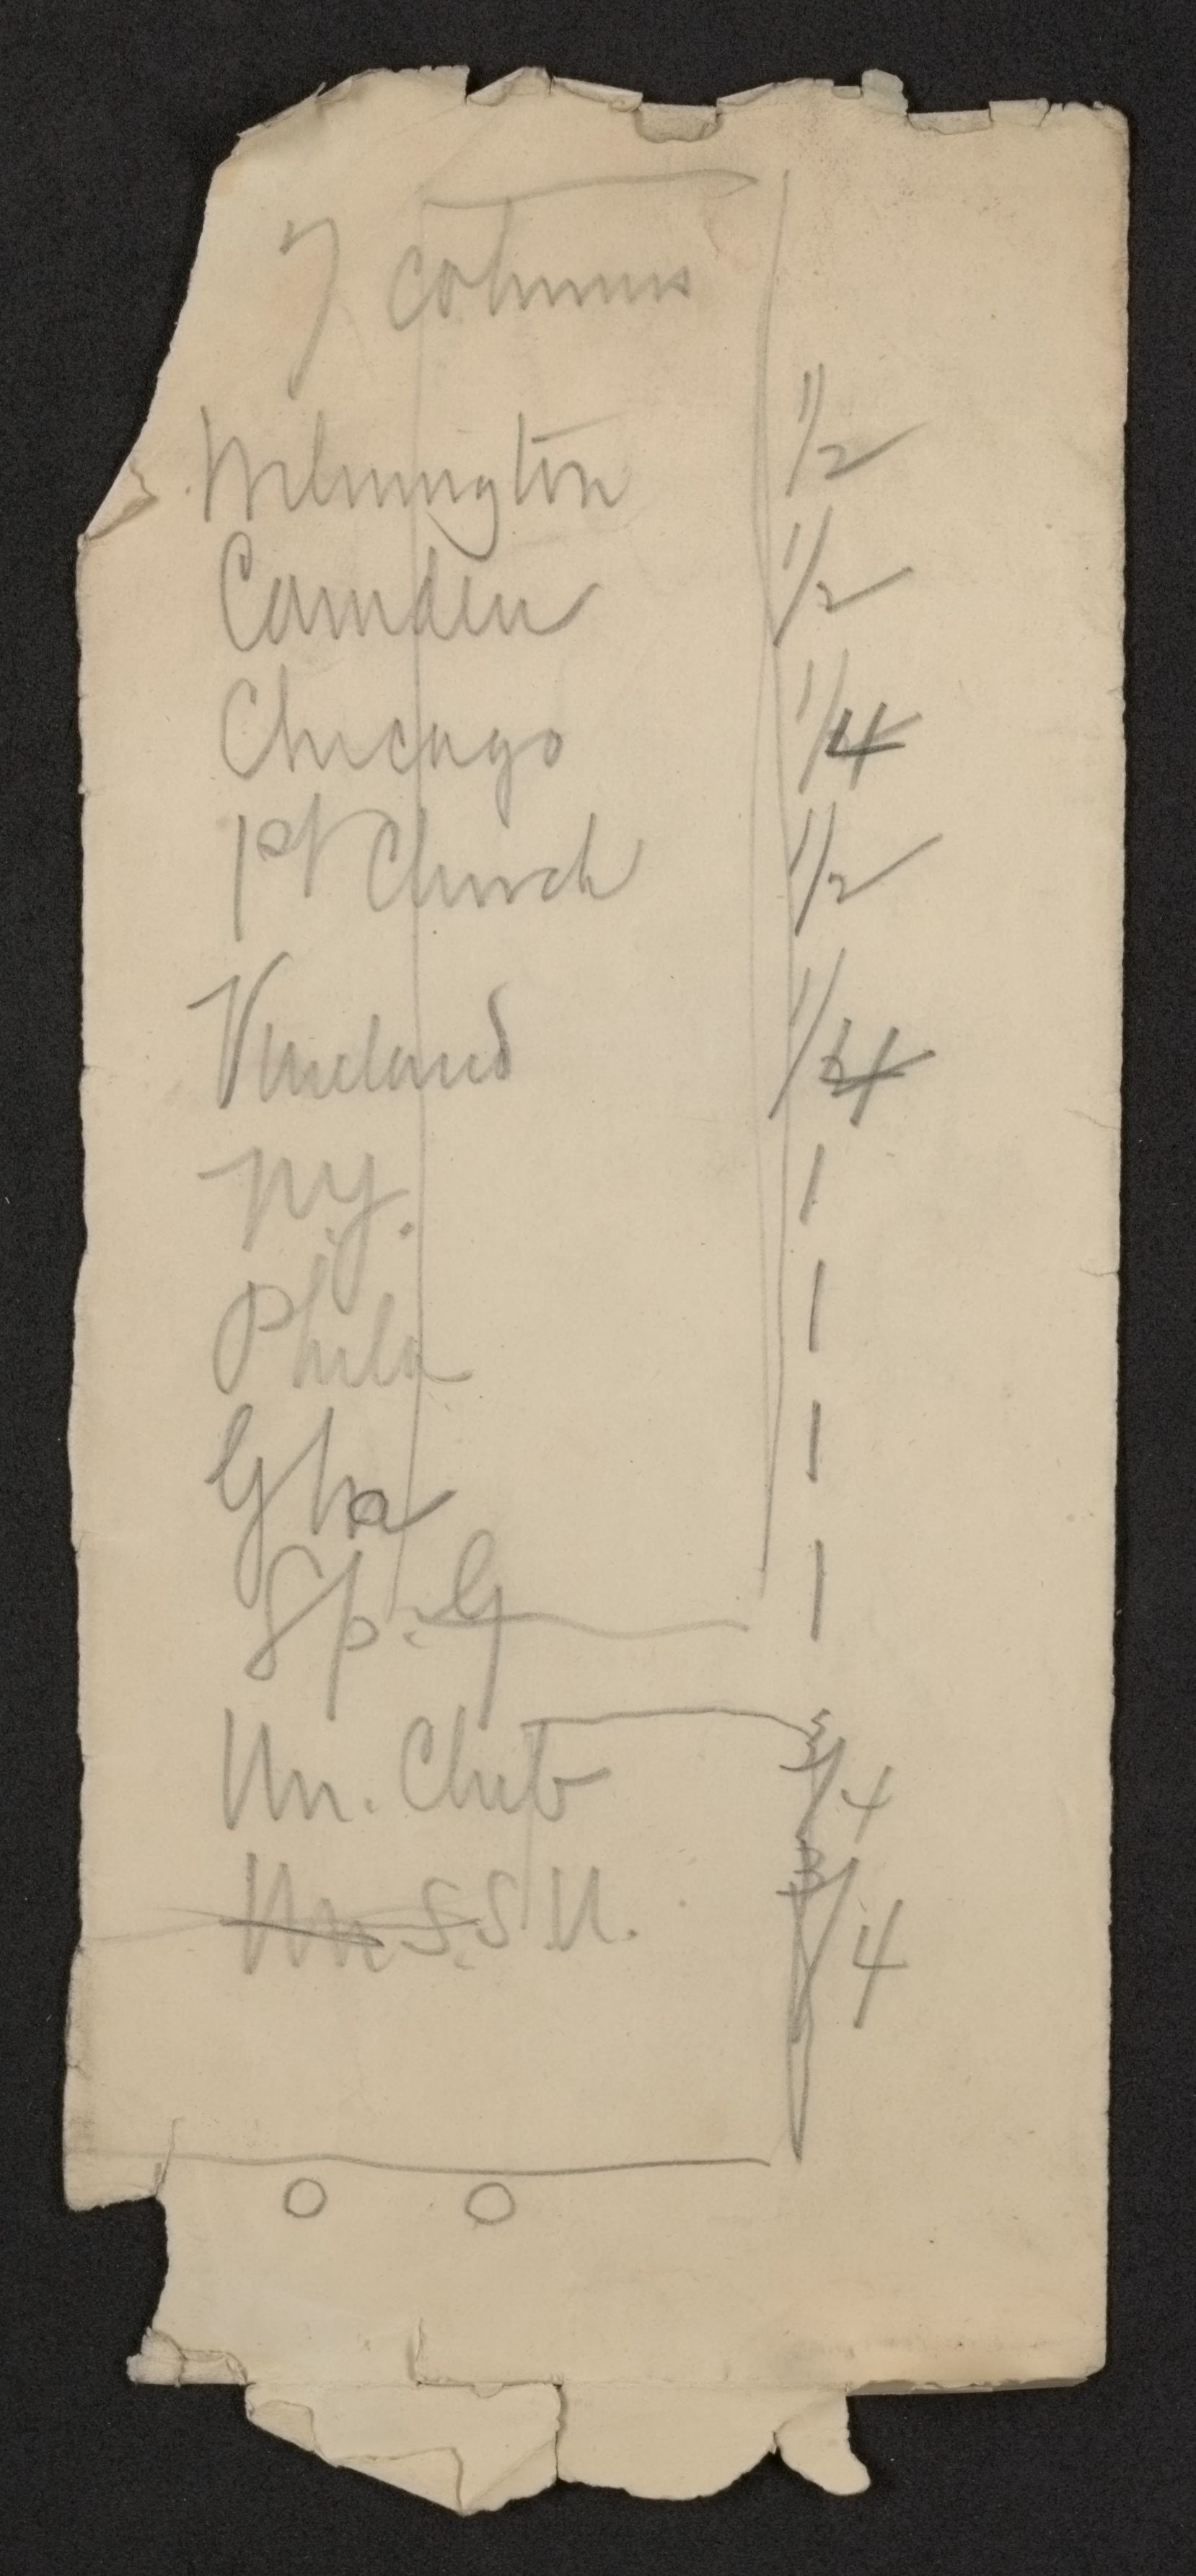 7 columns
Wilmington 1/2
Camden 1/2
Chicago 1/4
1st Church 1/2
Vineland 1/4
N.Y. 1
Phila 1
Gha 1
Sp. G 1
Un. Club 3/4
Un S.S.U. 3/4